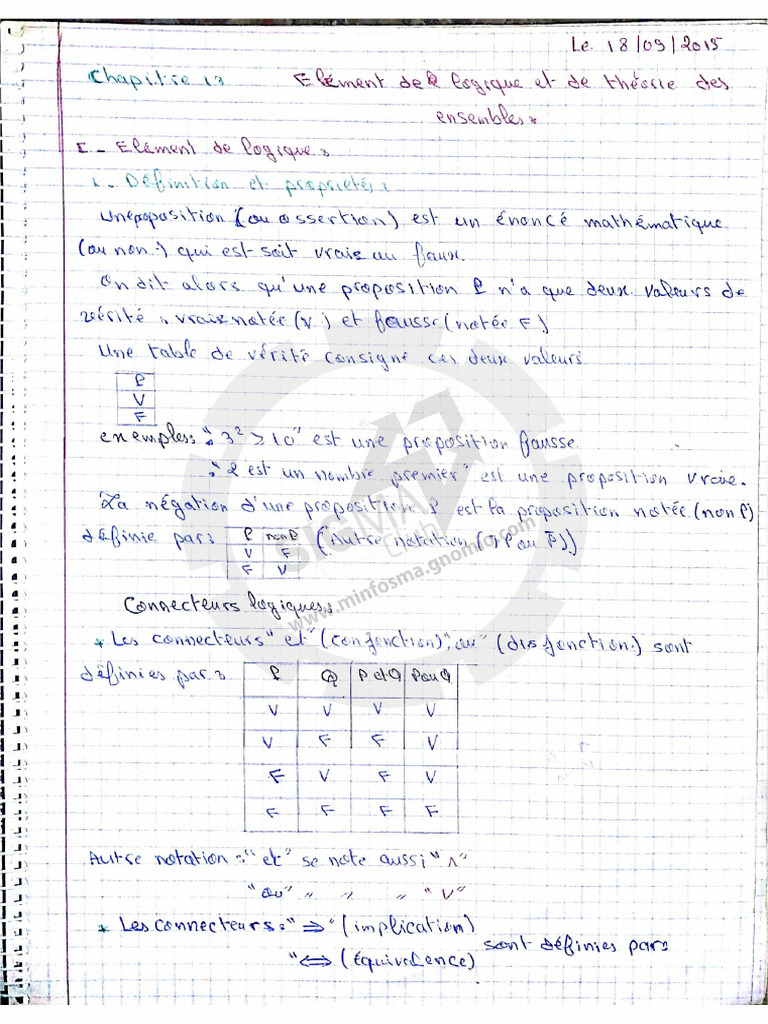 Le 18/09/2015
Chapitre 1: Elément de logique et de théorie des
ensembles:
I - Elément de logique:
1 - Définition et propriétés:
Une proposition (ou assertion) est un énoncé mathématique
(ou non:) qui est soit vraie ou faux.
On dit alors qu'une proposition P n'a que deux valeurs de
vérité: vraie notée (V) et fausse (notée F)
Une table de vérité consigne ces deux valeurs
P
V
F
exemples: "3² > 10" est une proposition fausse.
"2 est un nombre premier" est une proposition vraie.
La négation d'une proposition P est la proposition notée (non P)
définie par: P non P (Autre notation (ꓶP ou P̄))
V F
F V
Connecteurs logiques:
* Les connecteurs "et" (conjonction), "ou" (disjonction) sont
définies par: P Q P et Q P ou Q
V V V V
V F F V
F V F V
F F F F
Autre notation: "et" se note aussi "∧"
"ou" " " " "∨"
* Les connecteurs: "⇒" (implication)
"⇔ (équivalence) sont définies par:
SIGMA
Club
www.minfosma.gnomio.com